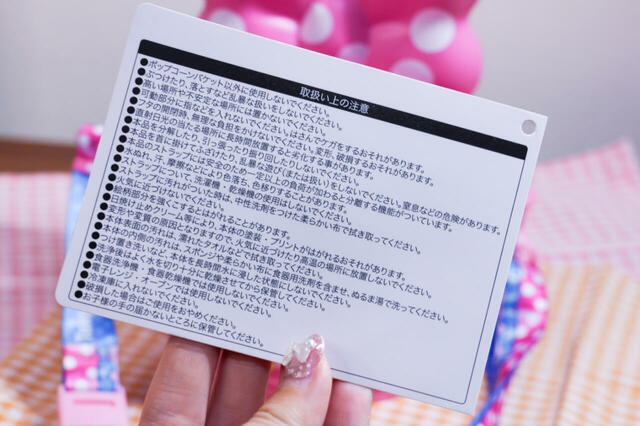 取扱い上の注意
●ポップコーンバケット以外に使用しないでください。
●ぶつけたり、落とすなど乱暴な扱いをしないでください。
●高い場所や不安定な場所には置かないでください。
●可動部分に指などを入れないでください。はさんでケガをするおそれがあります。
●フタの開閉時、無理な負担をかけないでください。変形、破損するおそれがあります。
●直射日光の当たる場所に長時間放置すると劣化する事があります。
●本品を分解したり、引っ張ったり振り回したりしないでください。
●本品を首に掛けてふざけたり、乱暴な遊び(または扱い)をしないでください。窒息などの危険があります。
●本品のストラップには安全のため一定以上の負荷が加わると分離する機能がついています。
●水ぬれ、汗、摩擦などにより色落ち、色移りすることがあります。
●ストラップについて、洗濯機・乾燥機の使用はしないでください。
●ストラップに汚れがついた時は、中性洗剤をつけた柔らかい布で拭き取ってください。
●火気に近づけないでください。
●絵柄部分を強くこするとはがれることがあります。
●日焼け止めクリーム等により、本体の塗装・プリントがはがれるおそれがあります。
●変形や変質の原因となりますので、火気に近づけたり高温の場所に放置しないでください。
●本体表面の汚れは、濡れたタオルなどで拭き取ってください。
●本体の内側の汚れは、スポンジや柔らかい布に食器用洗剤を含ませ、ぬるま湯で洗ってください。
●つけ置き洗いなど、本体を長時間水に浸した状態にしないでください。
●洗浄後はよく水を切り十分に乾燥させてから保管してください。
●食器洗浄機・食器乾燥機では使用しないでください。
●電子レンジ・オーブンでは使用しないでください。
●冷凍庫に入れないでください。
●破損した場合はご使用をおやめください。
●お子様の手の届かないところに保管してください。